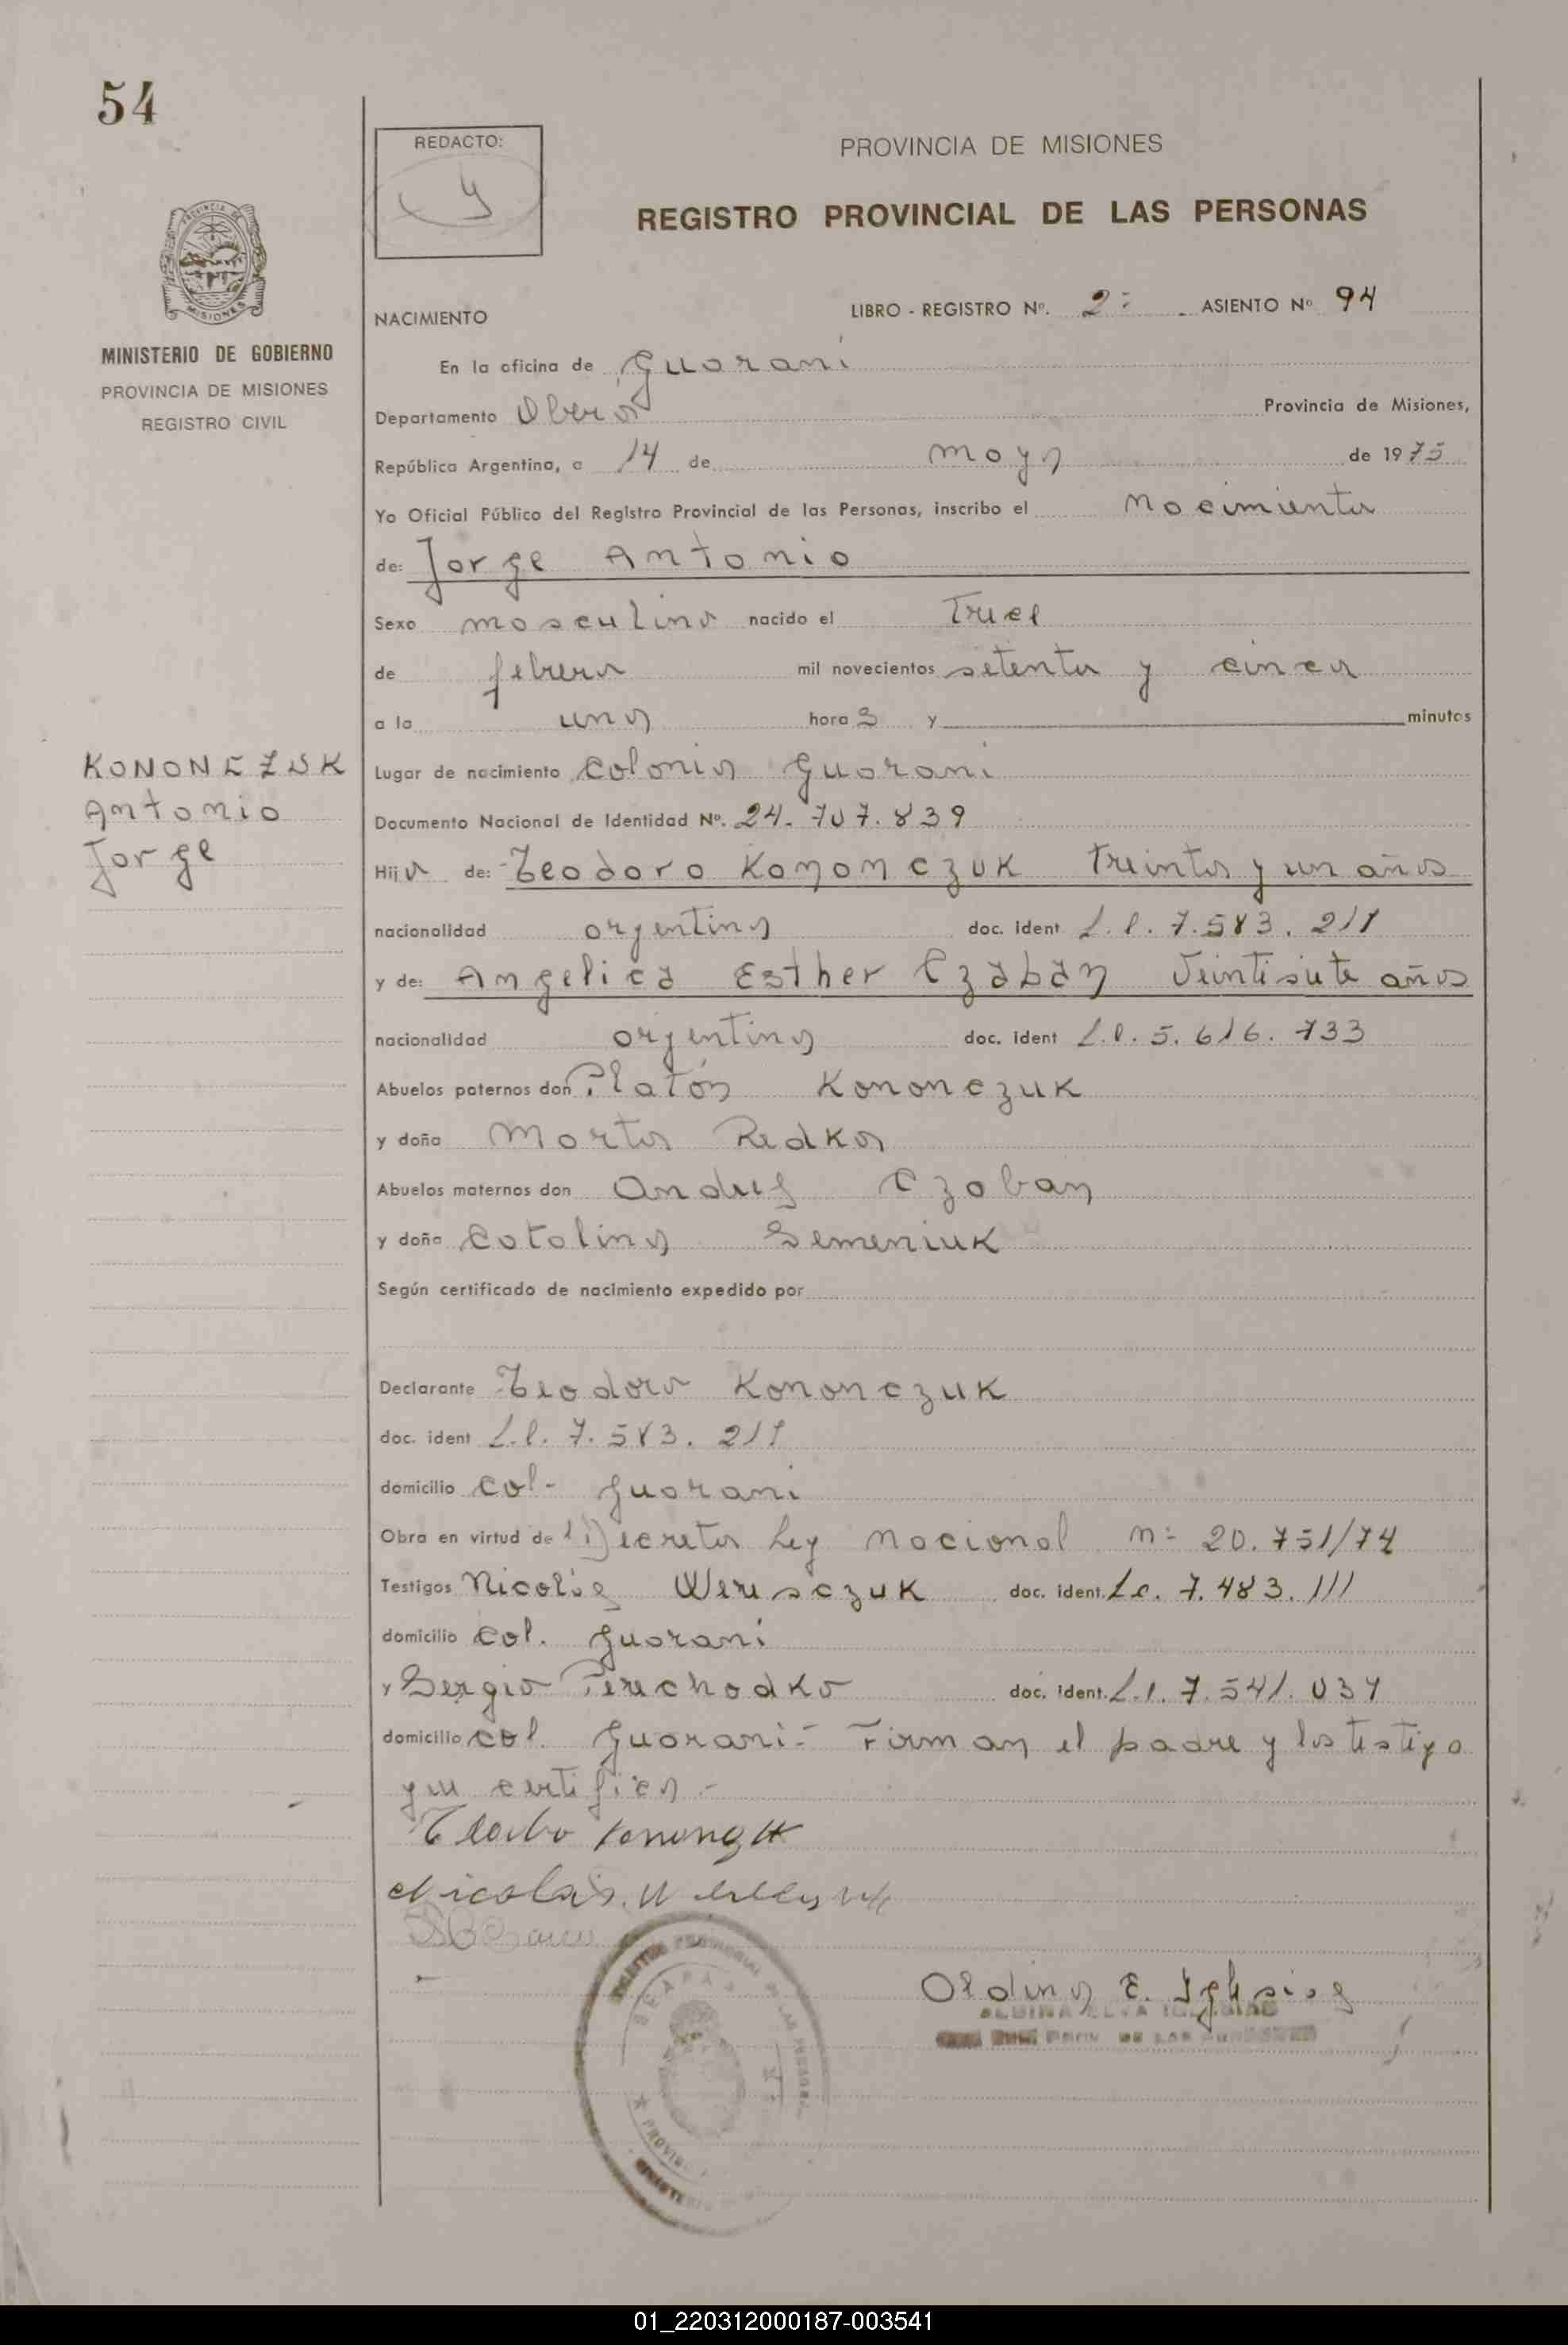 54
REDACTO:
PROVINCIA DE MISIONES
REGISTRO PROVINCIAL DE LAS PERSONAS
MINISTERIO DE GOBIERNO
PROVINCIA DE MISIONES
REGISTRO CIVIL
NACIMIENTO LIBRO - REGISTRO Nº. 2: ASIENTO Nº 94
En la oficina de Guarani
Departamento Oberá Provincia de Misiones,
República Argentina, a 14 de mayo de 1975
Yo Oficial Público del Registro Provincial de las Personas, inscribo el nacimiento
de: Jorge Antonio
Sexo masculino nacido el Trece
de febrero mil novecientos setenta y cinco
a la una hora s y minutos
Lugar de nacimiento Colonia Guarani
Documento Nacional de Identidad Nº. 24.707.839
KONONCZUK
Antonio
Jorge
Hijo de: Teodoro Kononczuk treinta y un años
nacionalidad argentina doc. ident L.E. 7.583.211
y de: Angelica Esther Czaban Veintisiete años
nacionalidad argentina doc. ident L.C. 5.616.733
Abuelos paternos don Platón Kononczuk
y doña Marta Redko
Abuelos maternos don Andres Czaban
y doña Catalina Semeniuk
Según certificado de nacimiento expedido por
Declarante Teodoro Kononczuk
doc. ident L.E. 7.583.211
domicilio Col- Guarani
Obra en virtud de Decreto Ley Nacional nº 20.751/74
Testigos Nicolás Weresczuk doc. ident. L.E. 7.483.111
domicilio Col. Guarani
y Sergio Perechodko doc. ident. L.E. 7.541.034
domicilio Col. Guarani- Firman el padre y los testigo
que certifico.-
Nicolás
Albina E. Iglesias
ALBINA ELVA IGLESIAS
PROV. DE LAS PERSONAS
01_220312000187-003541